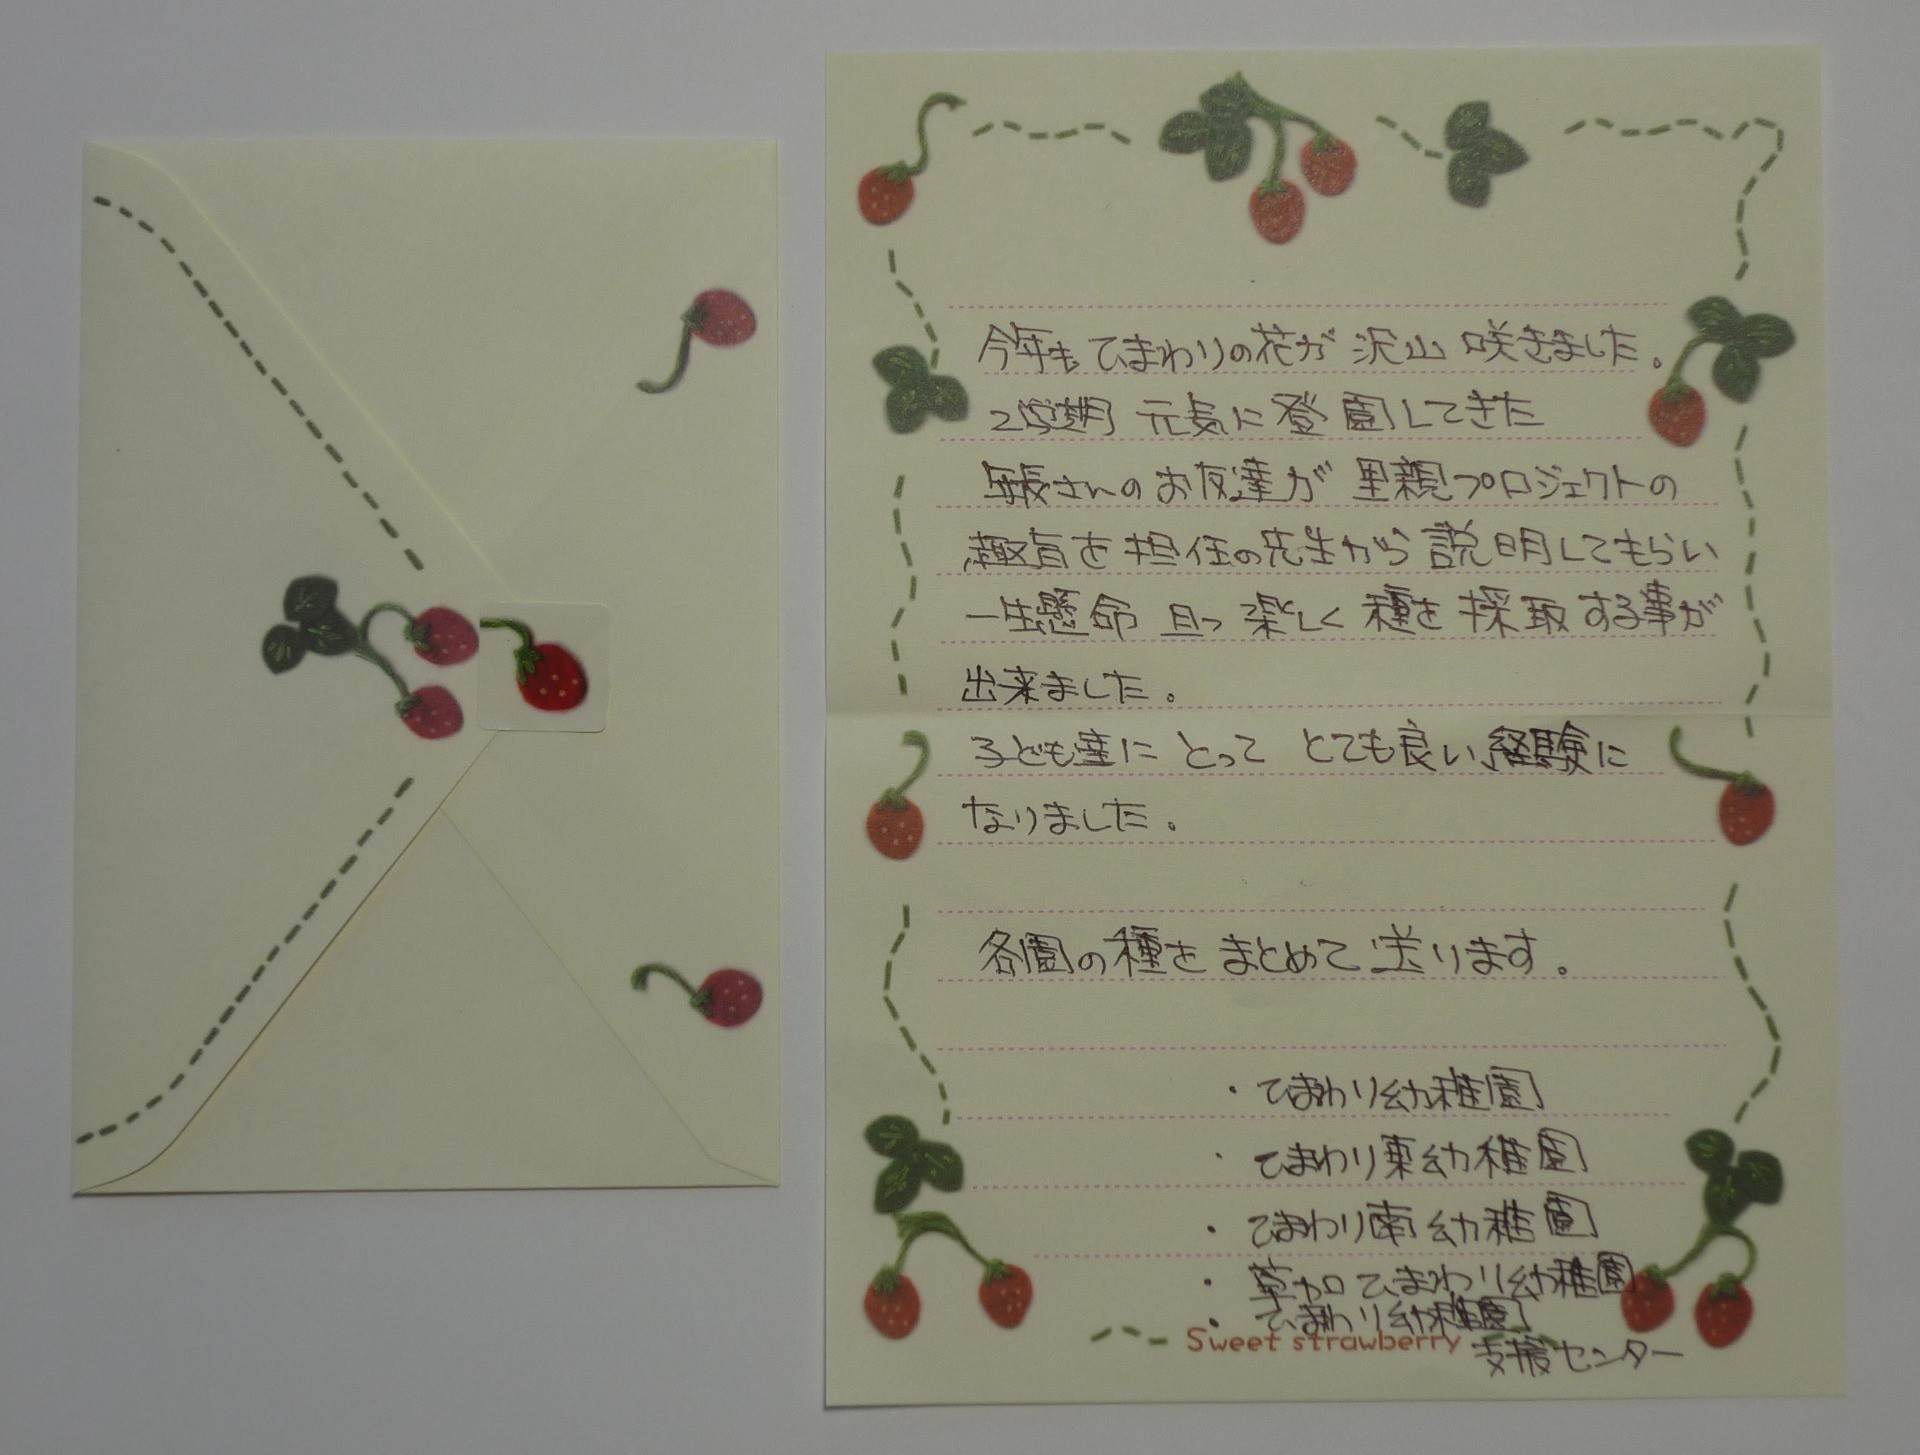 今年も ひまわりの花が 沢山 咲きました。
2学期 元気に登園してきた
年長さんのお友達が 里親プロジェクトの
趣旨を担任の先生から説明してもらい
一生懸命 且つ 楽しく 種を採取する事が
出来ました。
子ども達に とって とても良い経験に
なりました。
各園の種を まとめて 送ります。
・ひまわり幼稚園
・ひまわり東幼稚園
・ひまわり南幼稚園
・草加ひまわり幼稚園
・ひまわり幼稚園
支援センター
Sweet strawberry